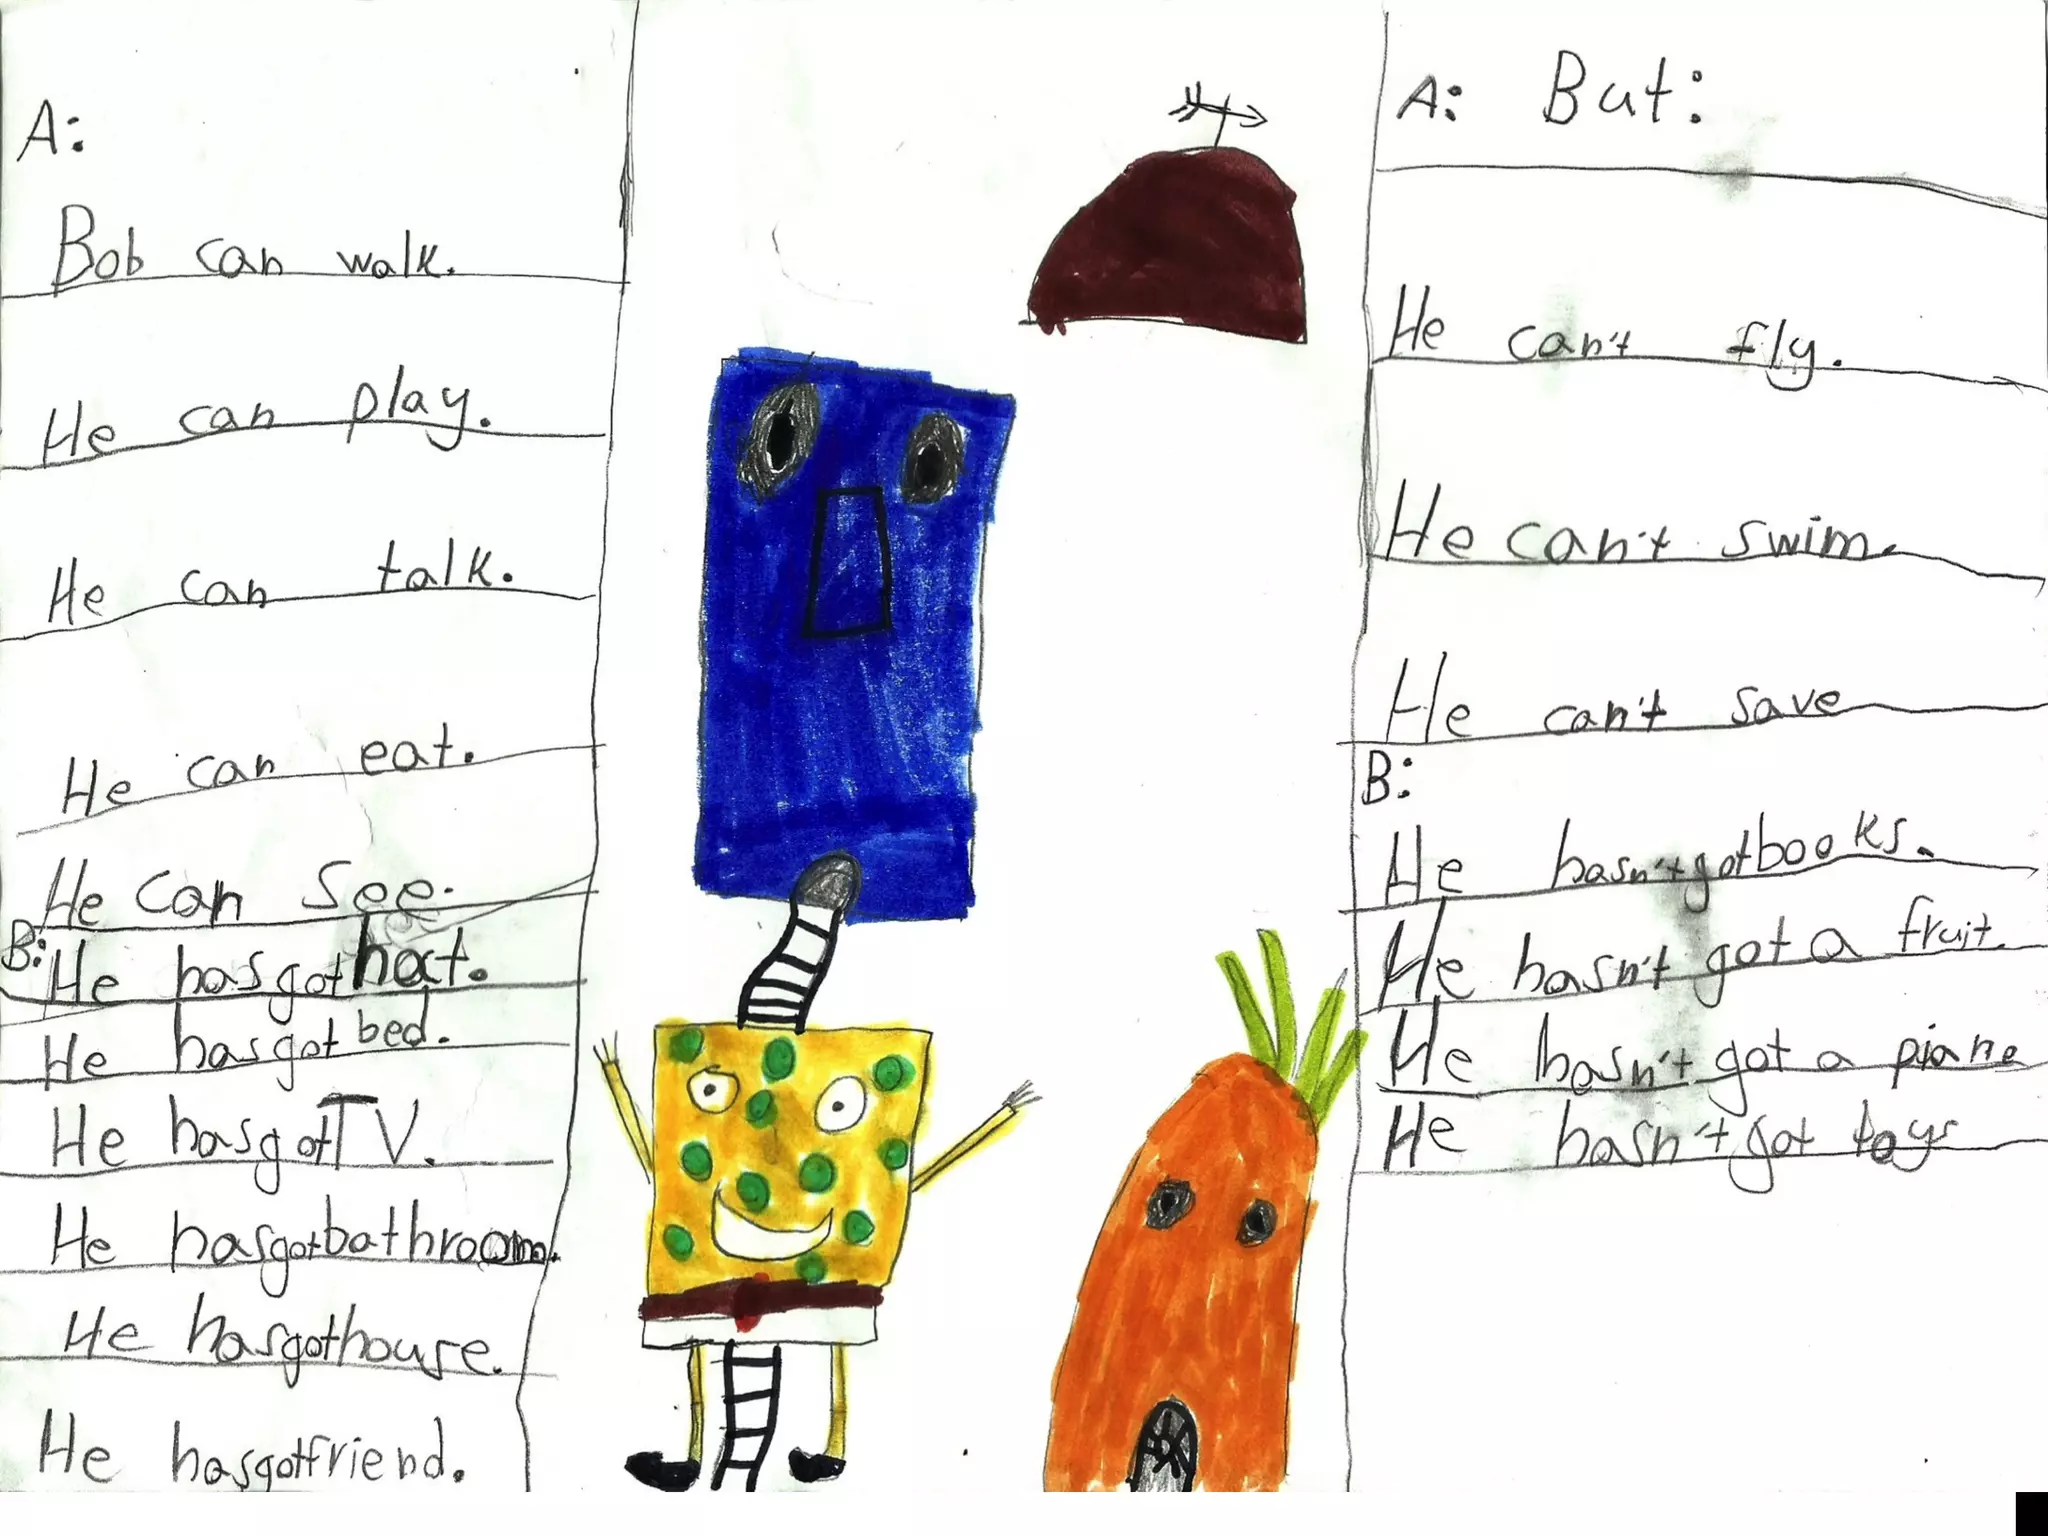 A:
Bob can walk.
He can play.
He can talk.
He can eat.
He can see.
B: He has got hat.
He has got bed.
He has got TV.
He has got bathroom.
He has got house.
He has got friend.
A: But:
He can't fly.
He can't swim.
He can't save
B:
He hasn't got books.
He hasn't got a fruit.
He hasn't got a piane
He hasn't got toys